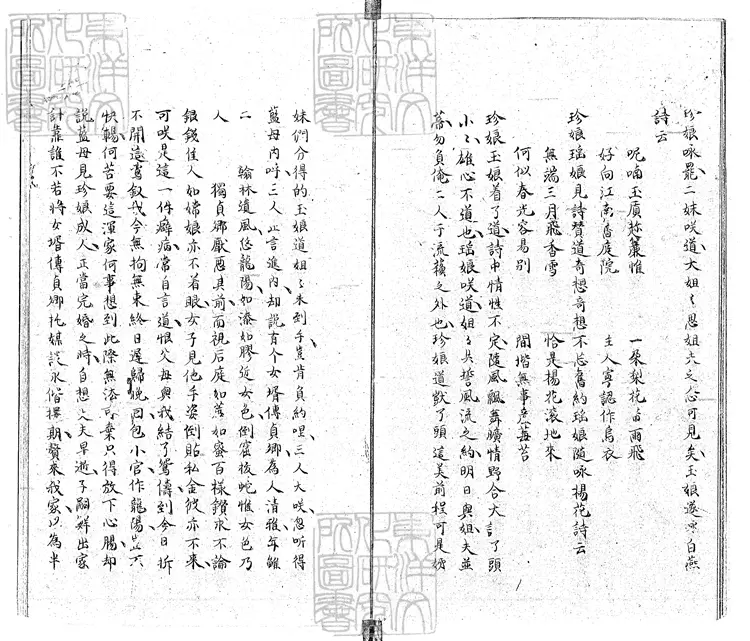 珍娘咏罷二妹咲道大姐〻思姐夫之念可見矣玉娘遂咏白燕
詩云
呢喃玉質趁簾帷　一朵梨花由雨飛
好向江南舊庭院　主人寧認作烏衣
珍娘瑶娘見詩贊道奇想奇想不忘舊約瑶娘隨咏楊花詩云
無端三月飛香雪　恰是楊花滚地來
何似春光容易别　閒堦無事惹莓苔
珍娘玉娘看了道詩中情性不定隨風飄舞曠情野合大計了頭
小〻雄心不道也瑶娘咲道姐〻共誓風流之約明日與姐夫並
蒂勿負俺二人于流蘋之外也珍娘道獃了頭這美前程可是妳
妹們分得的玉娘道姐〻未到手豈肯負約哩三人大咲忽听得
藍母内呼三人止言進内却説有个女壻傅貞卿為人清雅年雖
二　翰林遺風悠龍陽如漆如膠近女色倒窗後蛇惟女色乃
人　獨貞卿厭惡其前而視后庭如蔗如蜜百樣鑽求不論
銀錢佳人如嫦娘亦不着眼女子見他手姿倒貼私金彼亦不來
可咲是這一件癖病常自言道恨父母與我結了鴛儔到今日拆
不開這鸞釵我今無拘無束終日遲歸晚回包小官作龍陽出入
快暢何苦要這渾家何事想到此際無添可棄只得放下心腸却
説藍母見珍娘成人正當完婚之時自想丈夫早逝子嗣鮮出家
計靠誰不若將女壻傅貞卿托媒説永偕擇期贅來我家以為半